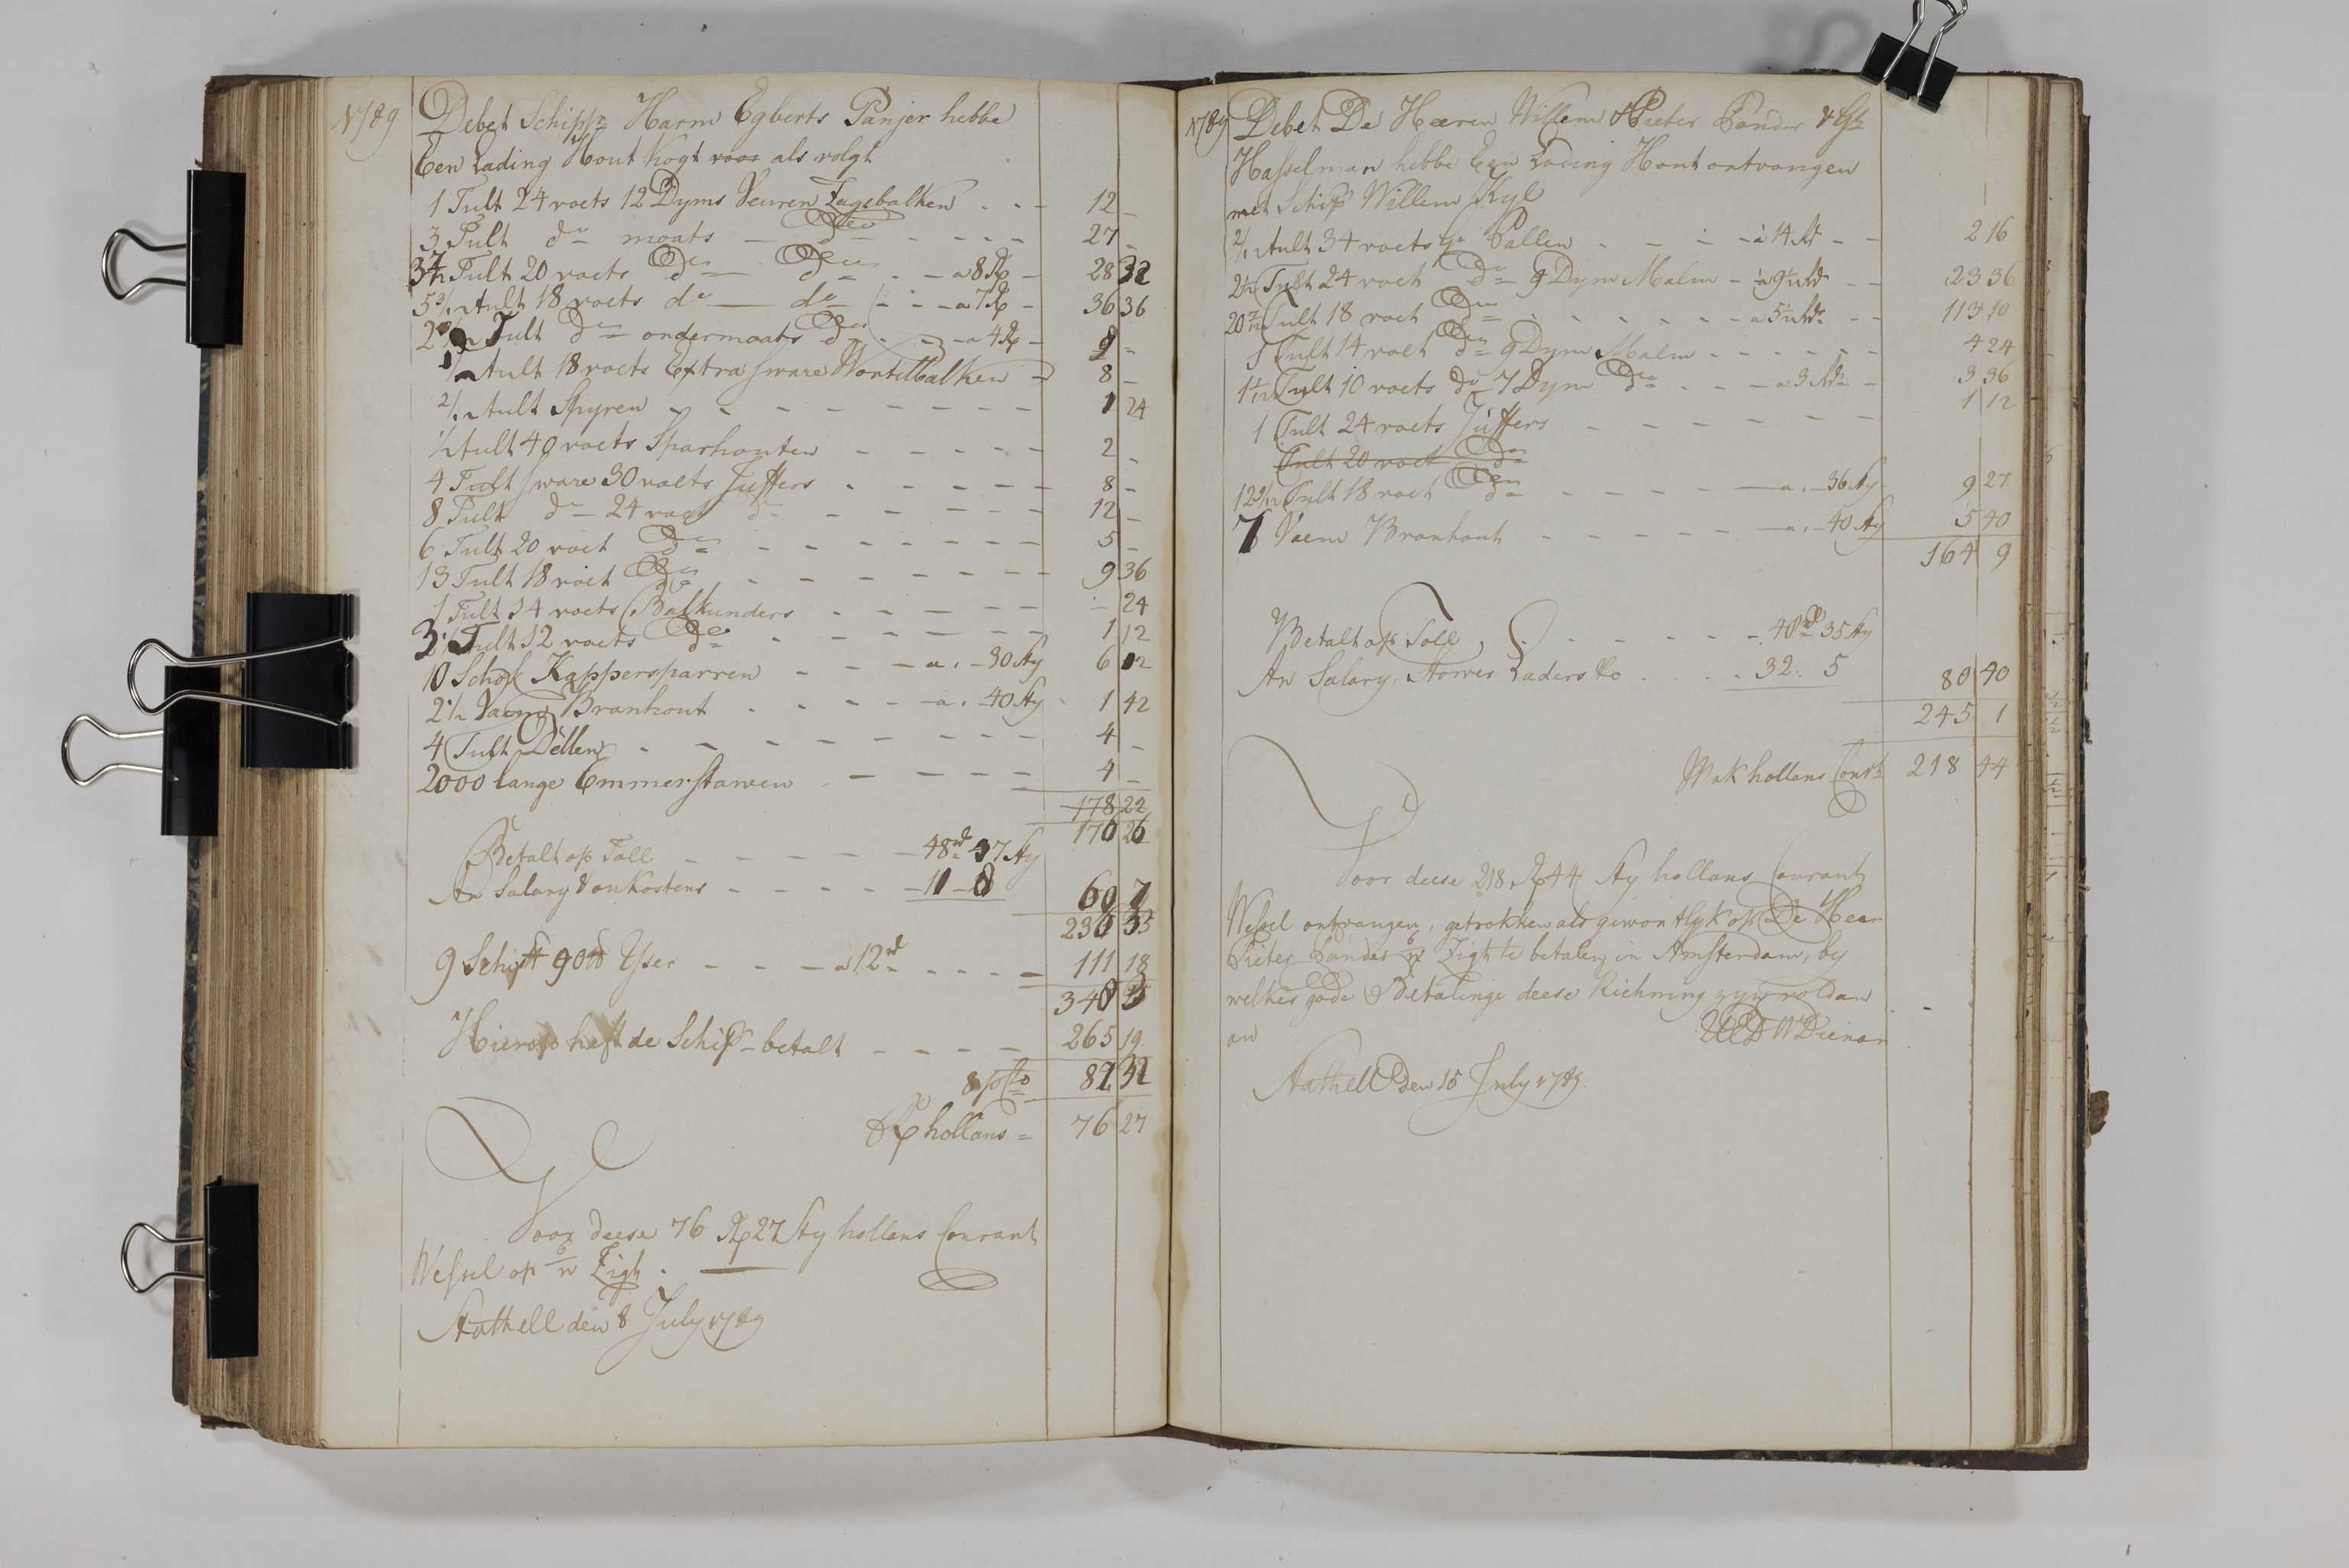 1789 Debet Schippr Harm Egberts Panjer hebbe
Een Lading Hout kogt voor als volgt
1 Tult 24 voets 12 Dyms Veuren Zagebalken - - - 12 -
3 Tult do moats - do - - - - 27 -
3 7/12 Tult 20 voets do do - - a 8 R - 28 32
5 3/12 Tult 18 voets do - do - - - a 7 R - 36 36
Tult do ondermaats do - - - a 4 R - 9 -
Tult 18 voets Extra sware Wortelbalken - 8 -
2/12 Tult Spyren - - - - - - - - 1 24
1/2 Tult 40 voets Sparhouten - - - - - 2 -
4 Tult sware 30 voets Juffers - - - - - 8 -
8 Tult do 24 voet do - - - - - 12 -
6 Tult 20 voet do - - - - - - - 5 -
13 Tult 18 voet do - - - - - - - 9 36
1 Tult 14 voets Balkunders - - - - - - 24
Tult 12 voets do - - - - - - 1 12
10 Schok Kappersparren - - - a. - 30 sty 6 12
2 1/2 Vaem Branhout - - - - a. - 40 sty 1 42
4 Tult Dellen - - - - - - - - 4 -
2000 lange Emmerstawen - - - - - 4 -
178 22
170 26
Betalt op Toll - - - - - 48rd 37 sty
An Salary & onkostens - - - - - 11 - 8 60 7
230 33
9 Schipt 90 tt Yser - - - a 12rd - - - - 111 18
340 3
Hierop heft de Schipr betalt - - - - 265 19
8 p Cto 82 32
R hollans = 76 27
Voor deese 76 R 27 sty hollans Courant
Wessel op 6/w Zigt. -
Stathell den 8 July 1789
1789 Debet De Heeren Willem & Pieter Pander &
Hasselman hebbe Een Lading Hout ontvangen
met Schipr Willem Kyl
2/12 Tult 34 voets gr Pallen - - - - a 14 Rd - - 2 16
2 1/2 Tult 24 voet do 9 Dym Malm - a 9 1/2 Rd - - 23 36
20 7/12 Tult 18 voet do - - - - - - - a 5 1/2 Rd - - 113 10
1 Tult 14 voet do 9 Dym Malm - - - - - - 4 24
Tult 10 voets do 7 Dym do - - - a 3 Rd - 3 36
1 Tult 24 voets Juffers - - - - - - 1 12
Tult 20 voet do
12 9/12 Tult 18 voet do - - - - - a. - 36 sty - 9 27
7 Vaem Branhout - - - - - - - a. - 40 sty 5 40
164 9
Betalt op Toll, - - - - - - 48rd 35 sty
An Salary, Storwes Laders &c - - - - 32. 5 80 40
245 1
Mak hollans Courth 218 44
Voor deese 218 R 44 sty hollans Courant
Wessel ontvangen, getrokken als gewontlyk op De Heer
Pieter Pander 6/w Zigt te betalen in Amsterdam, by
welkes gode Betalinge deese Riekning zyn voldan
an UED W Dienar
Stathell den 15 July 1789.